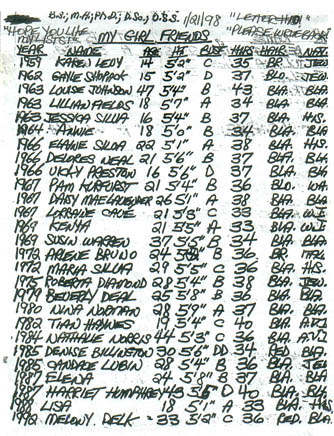 B.S.; M.A; Ph.D.; D.Sc.; D.S.S. 1/21/98 "LETTER
"HOPE YOU LIKE "PLEASE WRITE BACK"
MY LISTS" MY GIRL FRIENDS
YEAR NAME AGE HT. BUST HIPS HAIR NAT.
1959 KAREN LEVY 14 5'2" C 35 BR. JEW
1962 GAYLE 15 5'2" D 37 BLO. JEW
1963 LOUISE JOHNSON 47 5'4" B 43 BLA. BLA.
1963 LILLIAN FIELDS 18 5'7" A 34 BLA. BLA.
1963 JESSICA SILVA 16 5'4" B 37 BLA. HIS.
1964 ANNIE 18 5'0" B 34 BLA. BLA.
1966 ELAINE SILVA 22 5'1" A 38 BLA. HIS.
1966 DELORES NEAL 21 5'6" B 37 BLA. BLA.
1966 VICKY PRESTON 16 5'6" D 37 BLA. BLA.
1967 PAM 21 5'4" B 36 BLO. WA
1967 DAISY MAE LAVENDER 26 5'1" A 38 BLA. BLA.
1967 LORRAINE CAVE 21 5'3" C 33 BLA. W.I
1969 KENYA 21 5'5" A 33 BLA. W.I
1969 SUSIN WARREN 37 5'5" B 34 BLA. BLA.
1972 ARLENE BRUNO 24 B 36 BR.
1972 MARIA SILVA 29 5'5" C 36 BLA. HIS.
1975 ROBERTA DIAMOND 28 5'4" B 38 BLA. JEW.
1979 BEVERLY DEAL 25 5'8" B 36 BLA. BLA.
1980 NINA NORMAN 28 5'9" A 37 BLA. BLA.
1982 TIAN HAYNES 19 5'4" C 40 BLA.
1984 NATHALIE NORRIS 44 5'3" C 36 BLA.
1985 DENISE BILLINGTON 30 5'6" DD 34 RED BLA.
1985 CANDACE LUBIN 28 5'4" B 36 BLA.
1987 ELENA 24 5'8" B 37 BLA. BLA.
1987 HARRIET HUMPHREY 43 5'6" D 40 BLA.
1988 LISA 18 5'1" A 33 BLA. HIS
1998 MELONY. DELK - 33 5'2" C 36 RED. BLA.